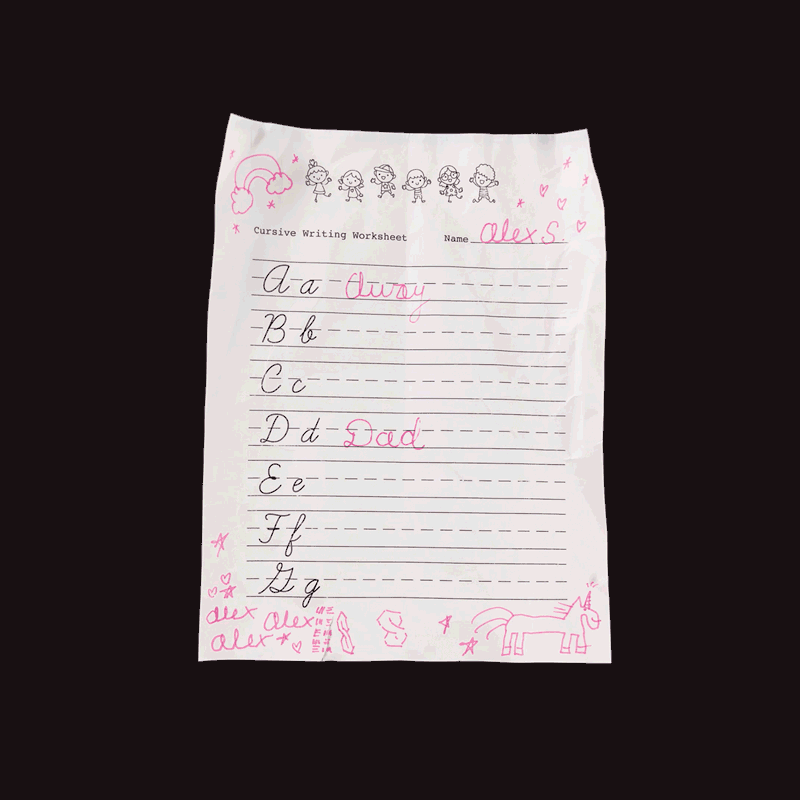 Cursive Writing Worksheet Name Alex S.
A a Away
B b
C c
D d Dad
E e
F f
G g
alex Alex
Alex